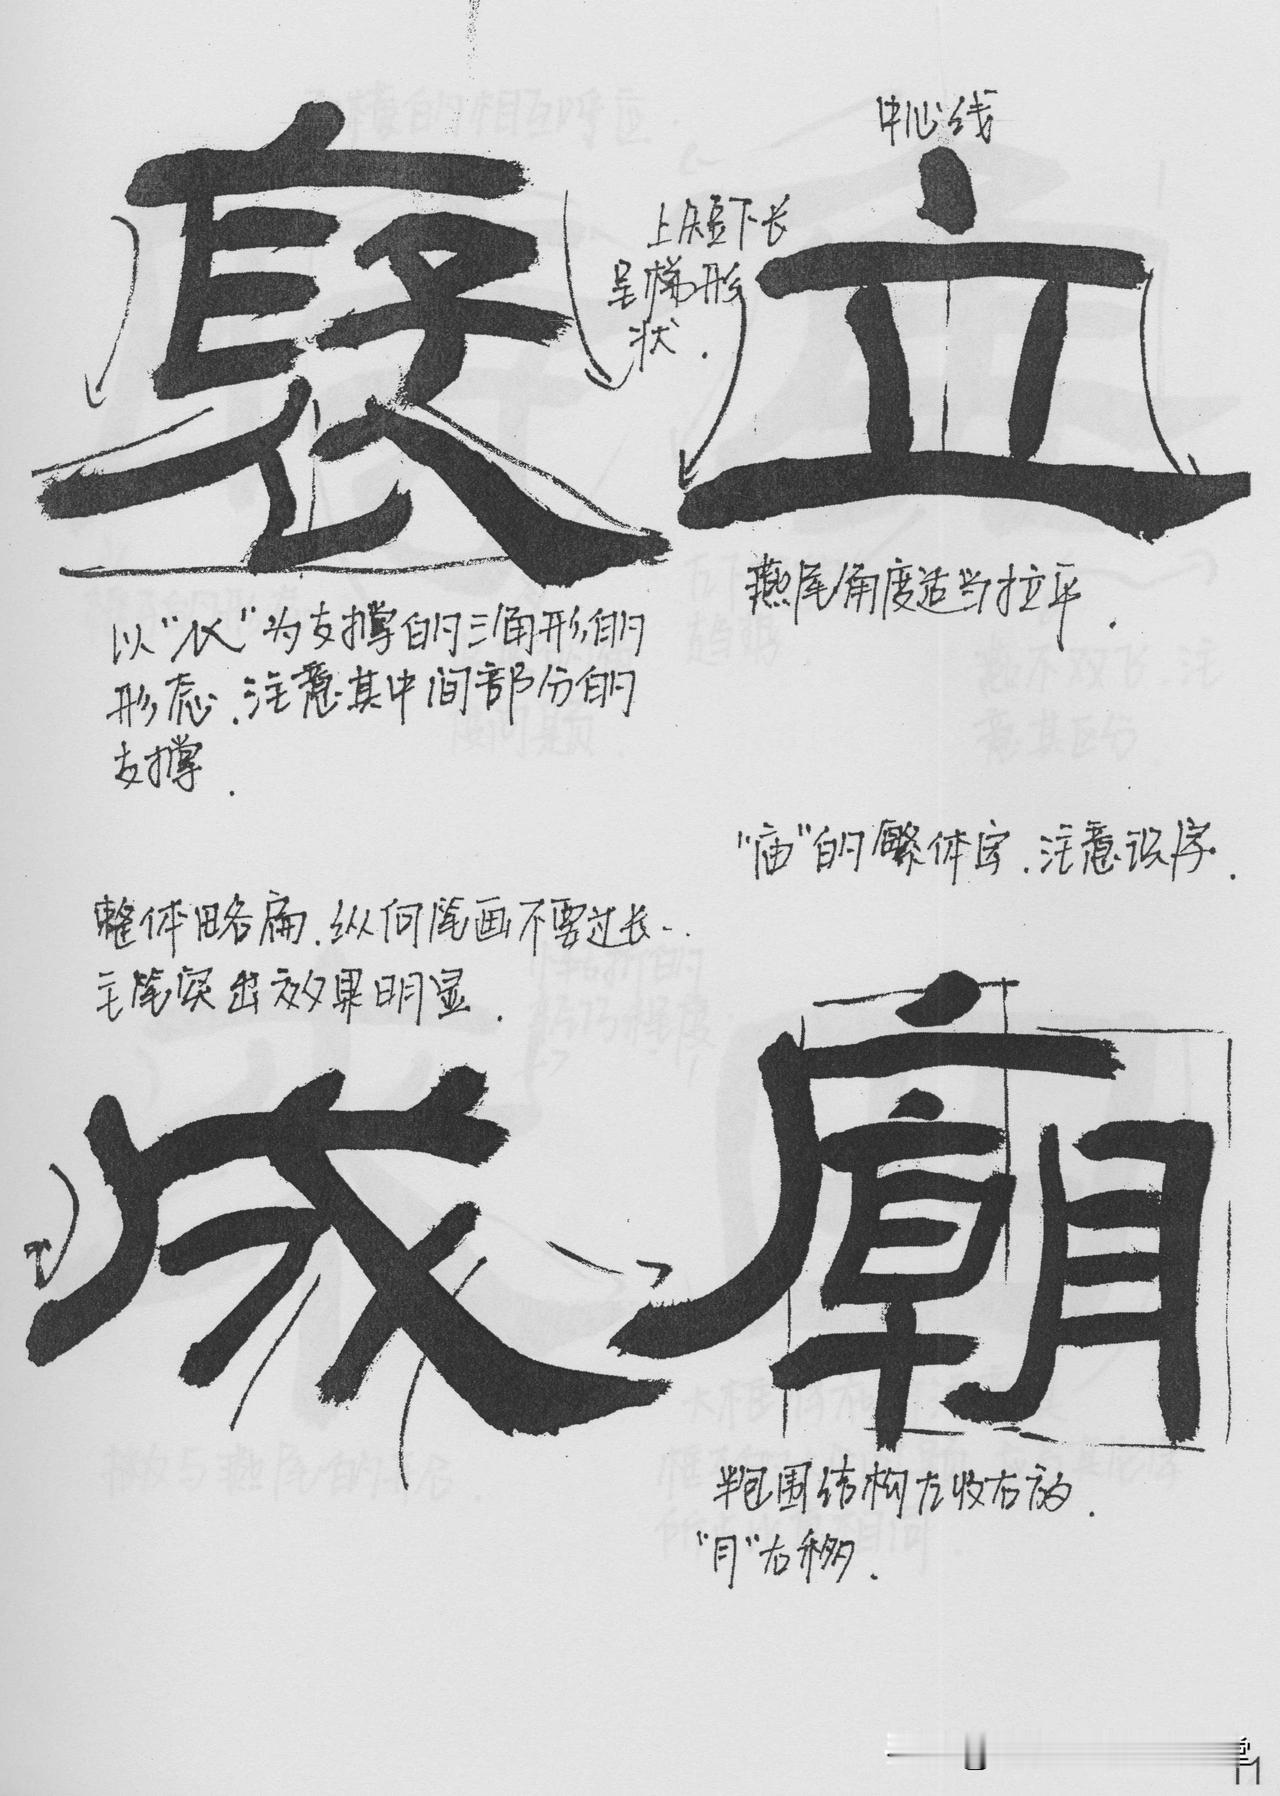 中心线
上短下长
呈梯形
状.
立
燕尾角度适当拉平.
褒
以"𧘇"为支撑的三角形的
形态.注意其中间部分的
支撑.
"庙"的繁体字.注意识字.
廟
半包围结构左收右放.
"月"右移.
整体略扁.纵向笔画不要过长..
主笔突出效果明显.
成